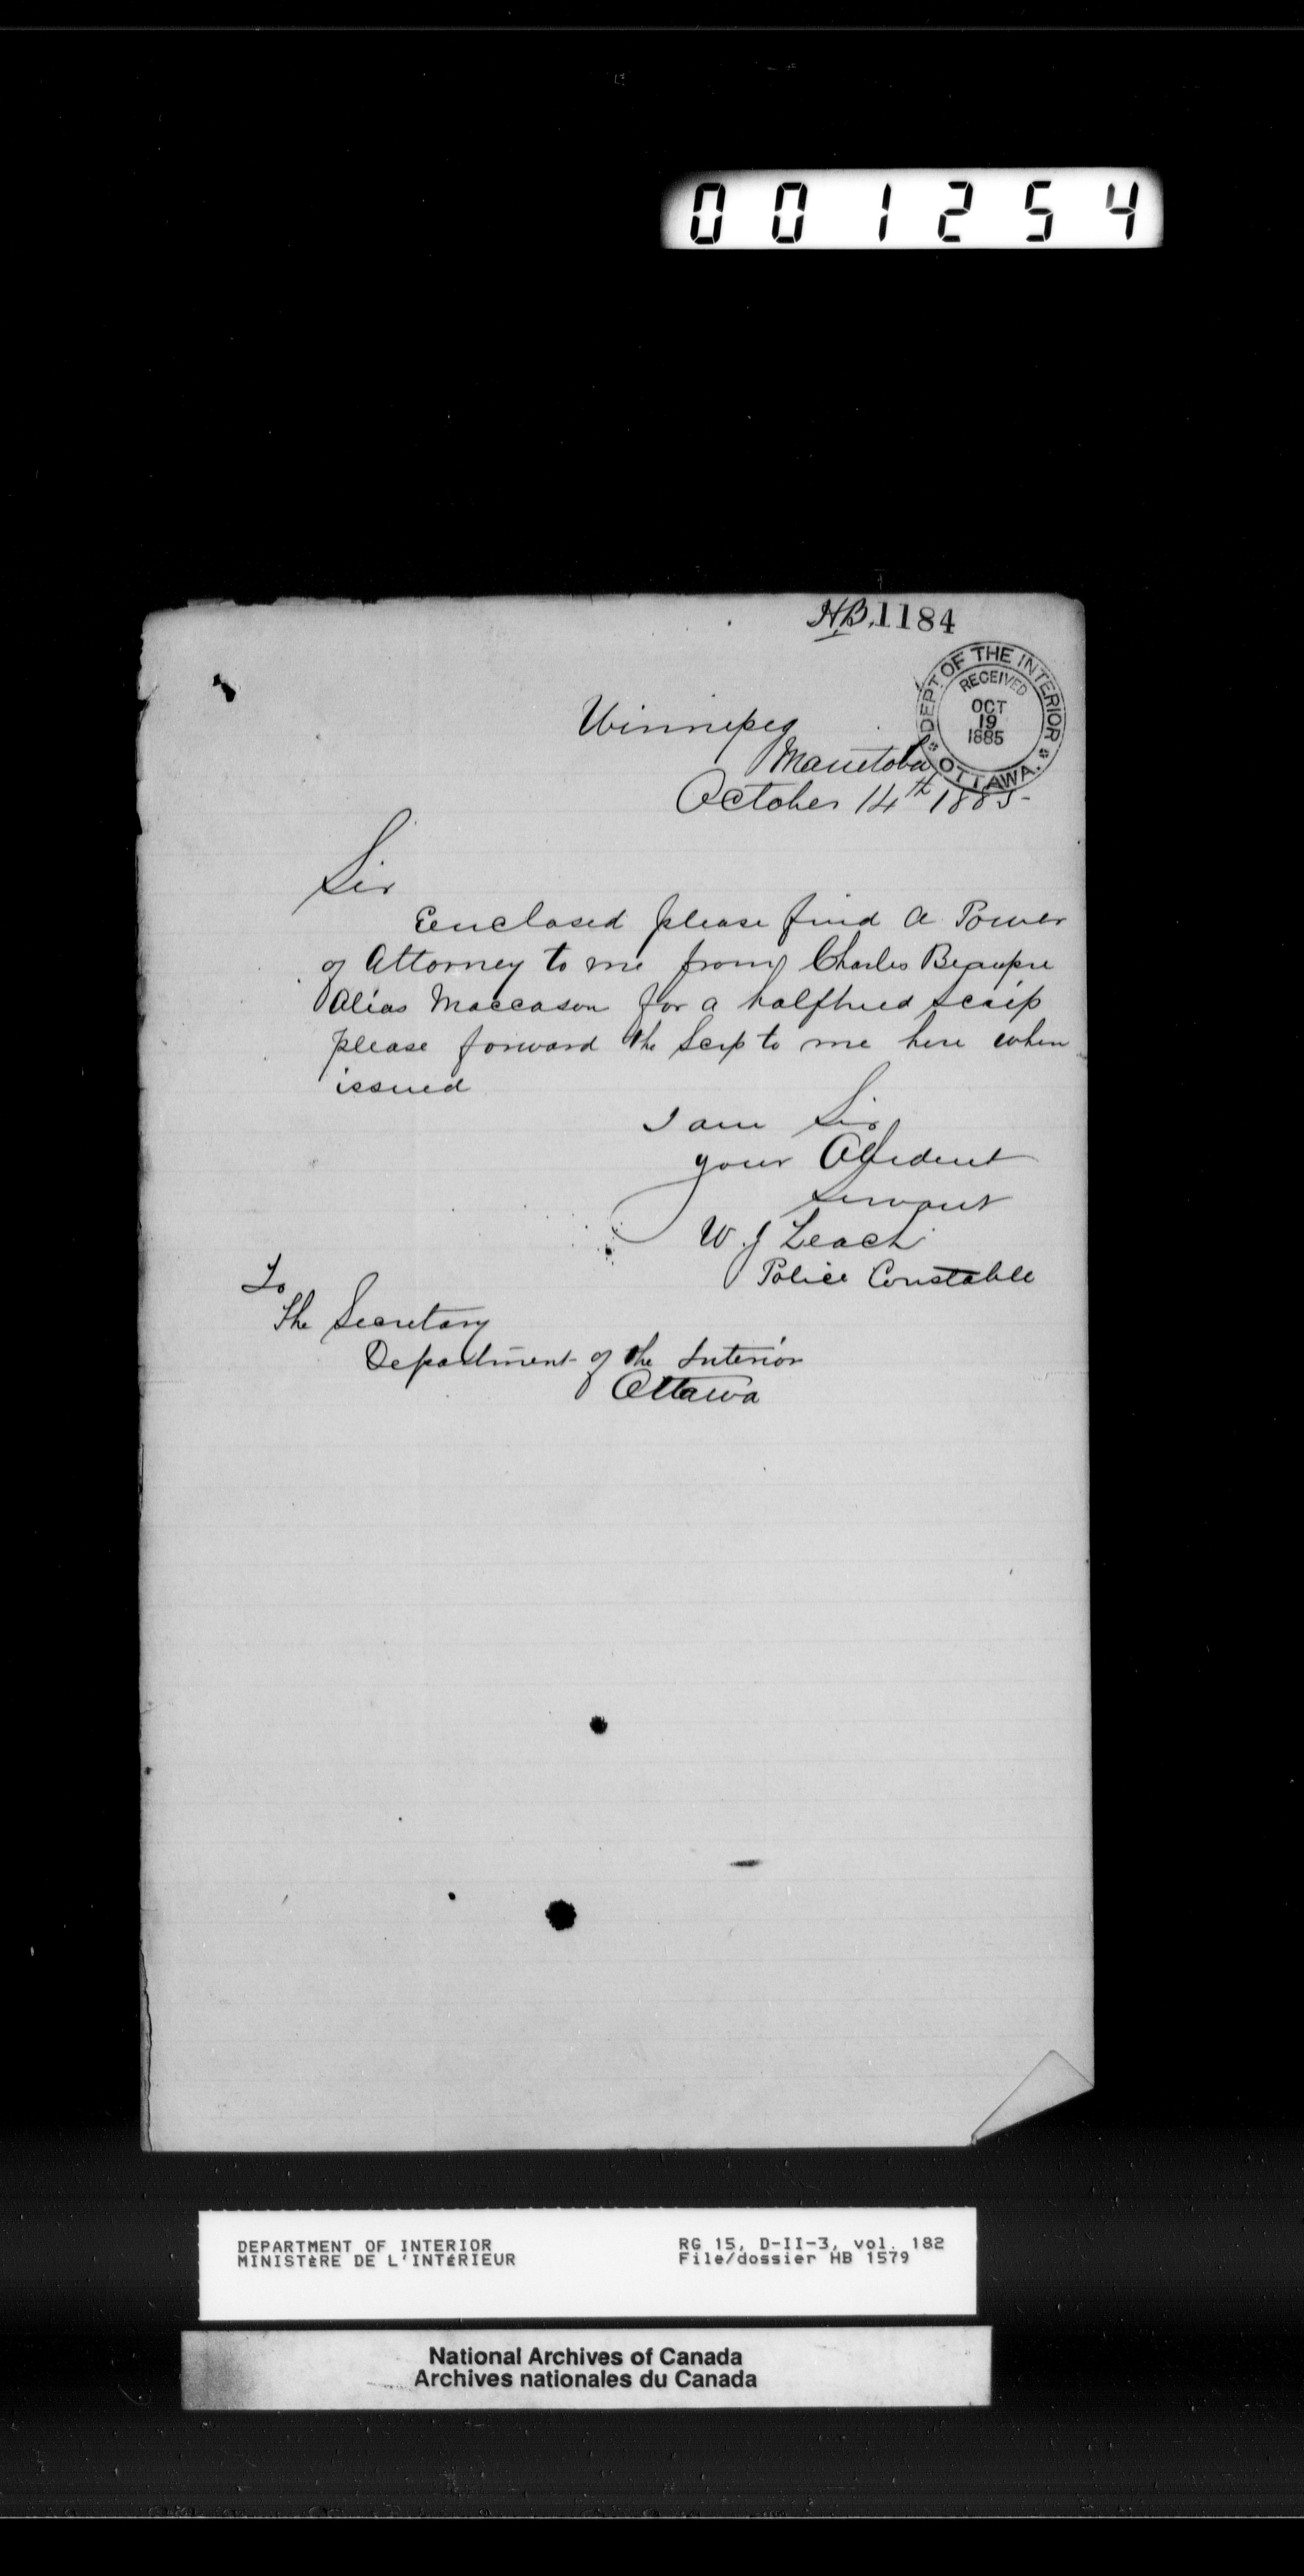 001254
H.B. 1184
DEPT. OF THE INTERIOR
RECEIVED
OCT
19
1885
OTTAWA.
Winnipeg
Manitoba
October 14th 1885-
Sir
Eenclosed please find a Power
of Attorney to me from Charles Beaupre
Alias Maccason for a halfbreed scrip
please forward the Scrp to me here when
issued
I am Sir
your Obedient
servant
W. J Leach
Police Constable
To
The Secretary
Department of the Interior
Ottawa
DEPARTMENT OF INTERIOR
MINISTÈRE DE L'INTÉRIEUR
RG 15, D-II-3, vol. 182
File/dossier HB 1579
National Archives of Canada
Archives nationales du Canada